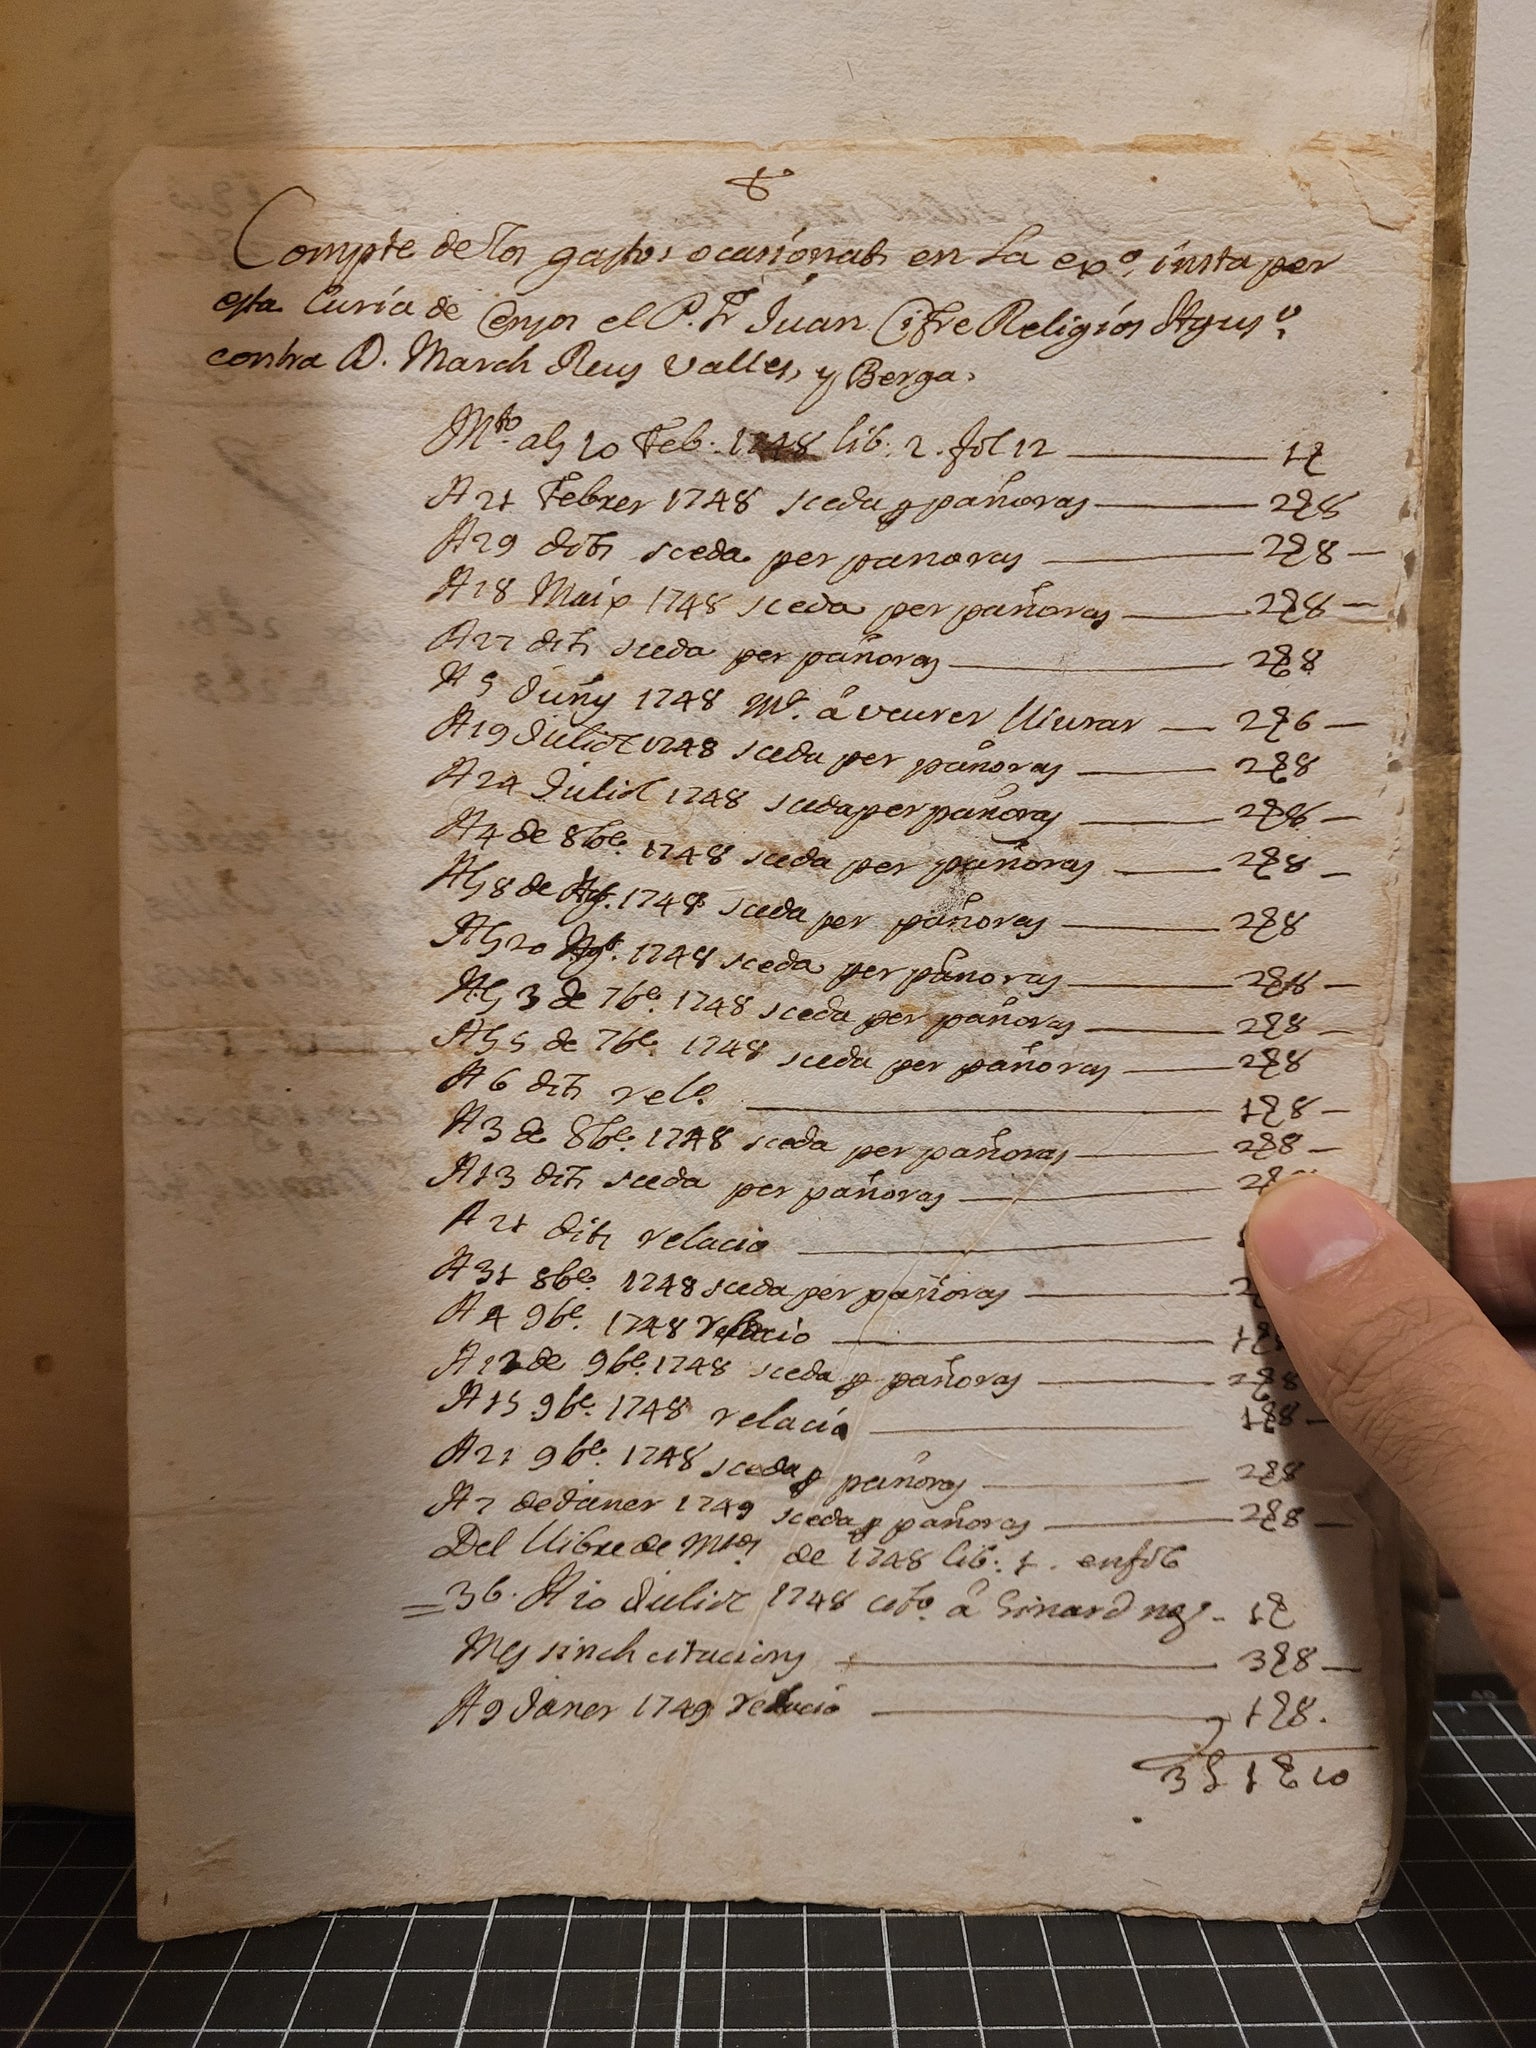 Compte de los gastos ocasionats en La exo. insta per
esta Curia de Censos el P. Fr Juan Cifre Religios Agusº
contra D. March Reus Valles, y Berga.
Mto. als 10 Feb. 1748 lib. 2. fol 12 — 1 ß
A 21 Febrer 1748 sceda p pañoras — 2 ß 8
A 29 dits sceda per panoras — 2 ß 8 —
A 18 Maix 1748 sceda per pañoras — 2 ß 8 —
A 27 dits sceda per pañoras — 2 ß 8
A 5 Juñy 1748 Mt. â veurer lliurar — 2 ß 6 —
A 19 Juliol 1748 sceda per pañoras — 2 ß 8
A 24 Juliol 1748 sceda per pañoras — 2 ß 8 —
A 4 de 8be. 1748 sceda per pañoras — 2 ß 8 —
Als 8 de Ag. 1748 sceda per pañoras — 2 ß 8
Als 20 Agt. 1748 sceda per pañoras — 2 ß 8 —
Als 3 de 7be. 1748 sceda per pañoras — 2 ß 8 —
Als 5 de 7be. 1748 sceda per pañoras — 2 ß 8
A 6 dits relº. — 1 ß 8 —
A 3 de 8be. 1748 sceda per pañoras — 2 ß 8 —
A 13 dits sceda per pañoras — 2
A 21 dits relacio —
A 31 8be. 1748 sceda per pañoras — 2
A 4 9be. 1748 relacio — 1 ß
A 12 de 9be. 1748 sceda p pañoras — 2 ß 8
A 15 9be. 1748 relacio — 1 ß 8 —
A 21 9be. 1748 sceda p pañoras — 2 ß 8
A 7 de Janer 1749 sceda p pañoras — 2 ß 8 —
Del llibre de Mtos de 1748 lib. 1. en fol
= 36. A 10 Juliol 1748 cito. â Ginard — 1 ß
Mes sinch citacions — 3 ß 8 —
A 9 Janer 1749 relacio — 1 ß 8.
3 £ 1 ß 10